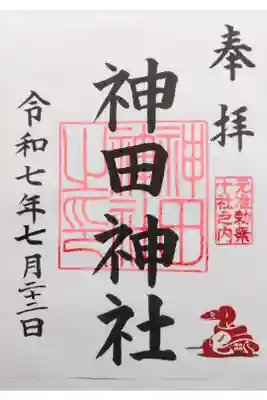 奉拝
元准勅祭
十社之内
神田神社
神田
神社
之印
令和七年七月二十二日